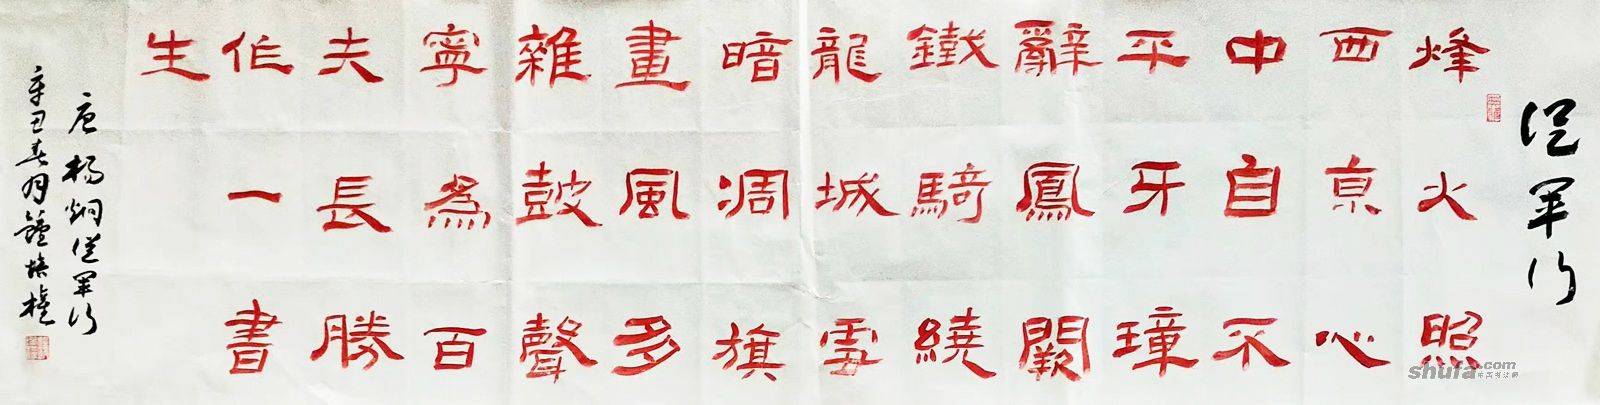 從軍行
烽火照
西京心
中自不
平牙璋
辭鳳闕
鐵騎繞
龍城雪
暗凋旗
畫風多
雜鼓聲
寧為百
夫長勝
作一書
生
唐楊炯從軍行
辛丑春月
shufa.com